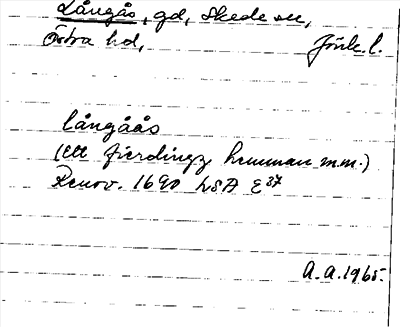 Långås, gd, Skede sn,
Östra hd, Jönk. l.
långåås
(ett fierdingz hemman m.m.)
Renov. 1690 LSA E 37
A.A. 1965.